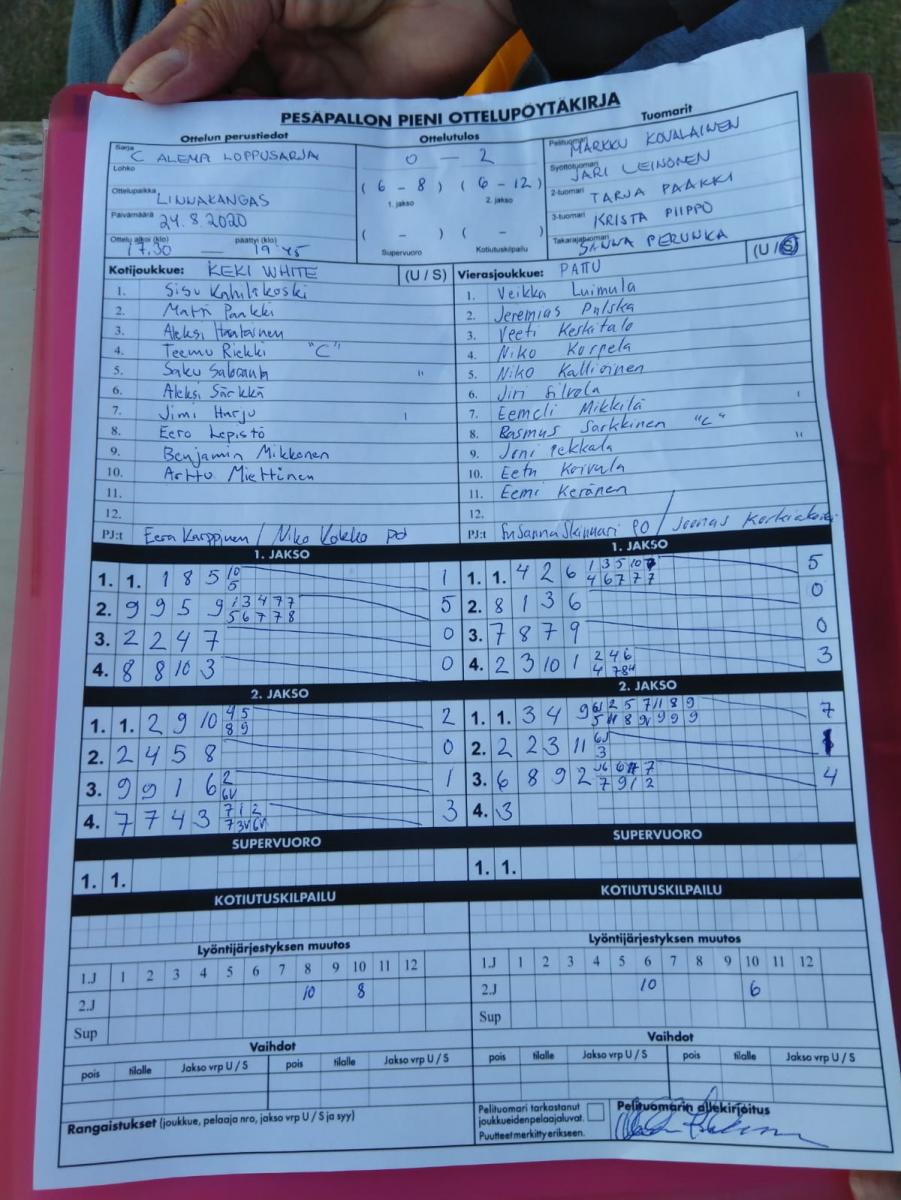 PESÄPALLON PIENI OTTELUPÖYTÄKIRJA
Ottelun perustiedot
Sarja C ALEMA LOPPUSARJA
Lohko
Ottelupaikka LINNAKANGAS
Päivämäärä 24.8.2020
Ottelu alkoi (klo) 17.30 — päättyi (klo) 19.45
Ottelutulos
0 — 2
( 6 - 8 ) ( 6 - 12 )
1. jakso 2. jakso
( - ) ( - )
Supervuoro Kotiutuskilpailu
Tuomarit
Pelituomari MARKKU KOVALAINEN
Syöttötuomari JARI LEINONEN
2-tuomari TARJA PAAKKI
3-tuomari KRISTA PIIPPO
Takarajatuomari SANNA PERUNKA
Kotijoukkue: KEKI WHITE (U / S)
1. Sisu
2. Matti Paakki
3. Aleksi
4. Teemu Riekki "C"
5. Saku "
6. Aleksi Särkkä
7. Jimi Harju ı
8. Eero Lepistö
9. Benjamin Mikkonen
10. Arttu Miettinen
11.
12.
PJ:t Eero Karppinen / Niko Kokko PO
Vierasjoukkue: PATTU (U / S)
1. Veikka Luimula
2. Jeremias Pulska
3. Veeti Keskitalo
4. Niko Korpela
5. Niko Kallioinen
6. Jiri Silvola ı
7. Eemeli Mikkilä
8. Rasmus Sarkkinen "C"
9. Joni Pekkala "
10. Eetu Koivula
11. Eemi Keränen
12.
PJ:t Susanna Skinnari PO / Joonas
1. JAKSO
1. 1. 1 8 5 10 1
5
2. 9 9 5 9 1 3 4 7 7 5
5 6 7 7 8
3. 2 2 4 7 0
4. 8 8 10 3 0
1. JAKSO
1. 1. 4 2 6 1 3 5 10 5
4 6 7 7 7
2. 8 1 3 6 0
3. 7 8 7 9 0
4. 2 3 10 1 2 4 6 3
4 7
2. JAKSO
1. 1. 2 9 10 4 5 2
8 9
2. 2 4 5 8 0
3. 9 9 1 6 2 1
6V
4. 7 7 4 3 7 1 2 3
7 3V 6V
2. JAKSO
1. 1. 3 4 9 2 5 7 11 8 9 7
5 11 8 9V 9 9 9
2. 2 2 3 11 1
3
3. 6 8 9 2 7 4
7 9 1 2
4. 3
SUPERVUORO
1. 1.
SUPERVUORO
1. 1.
KOTIUTUSKILPAILU
KOTIUTUSKILPAILU
Lyöntijärjestyksen muutos
1.J 1 2 3 4 5 6 7 8 9 10 11 12
2.J 10 8
Sup
Lyöntijärjestyksen muutos
1.J 1 2 3 4 5 6 7 8 9 10 11 12
2.J 10 6
Sup
Vaihdot
pois tilalle Jakso vrp U / S pois tilalle Jakso vrp U / S
Vaihdot
pois tilalle Jakso vrp U / S pois tilalle Jakso vrp U / S
Rangaistukset (joukkue, pelaaja nro, jakso vrp U / S ja syy)
Pelituomari tarkastanut
joukkueiden pelaajaluvat.
Puutteet merkitty erikseen.
Pelituomarin allekirjoitus